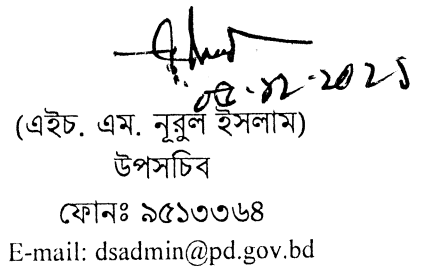 ০৫-১২-২০২১
(এইচ. এম. নূরুল ইসলাম)
উপসচিব
ফোনঃ ৯৫১৩৩৬৪
E-mail: dsadmin@pd.gov.bd